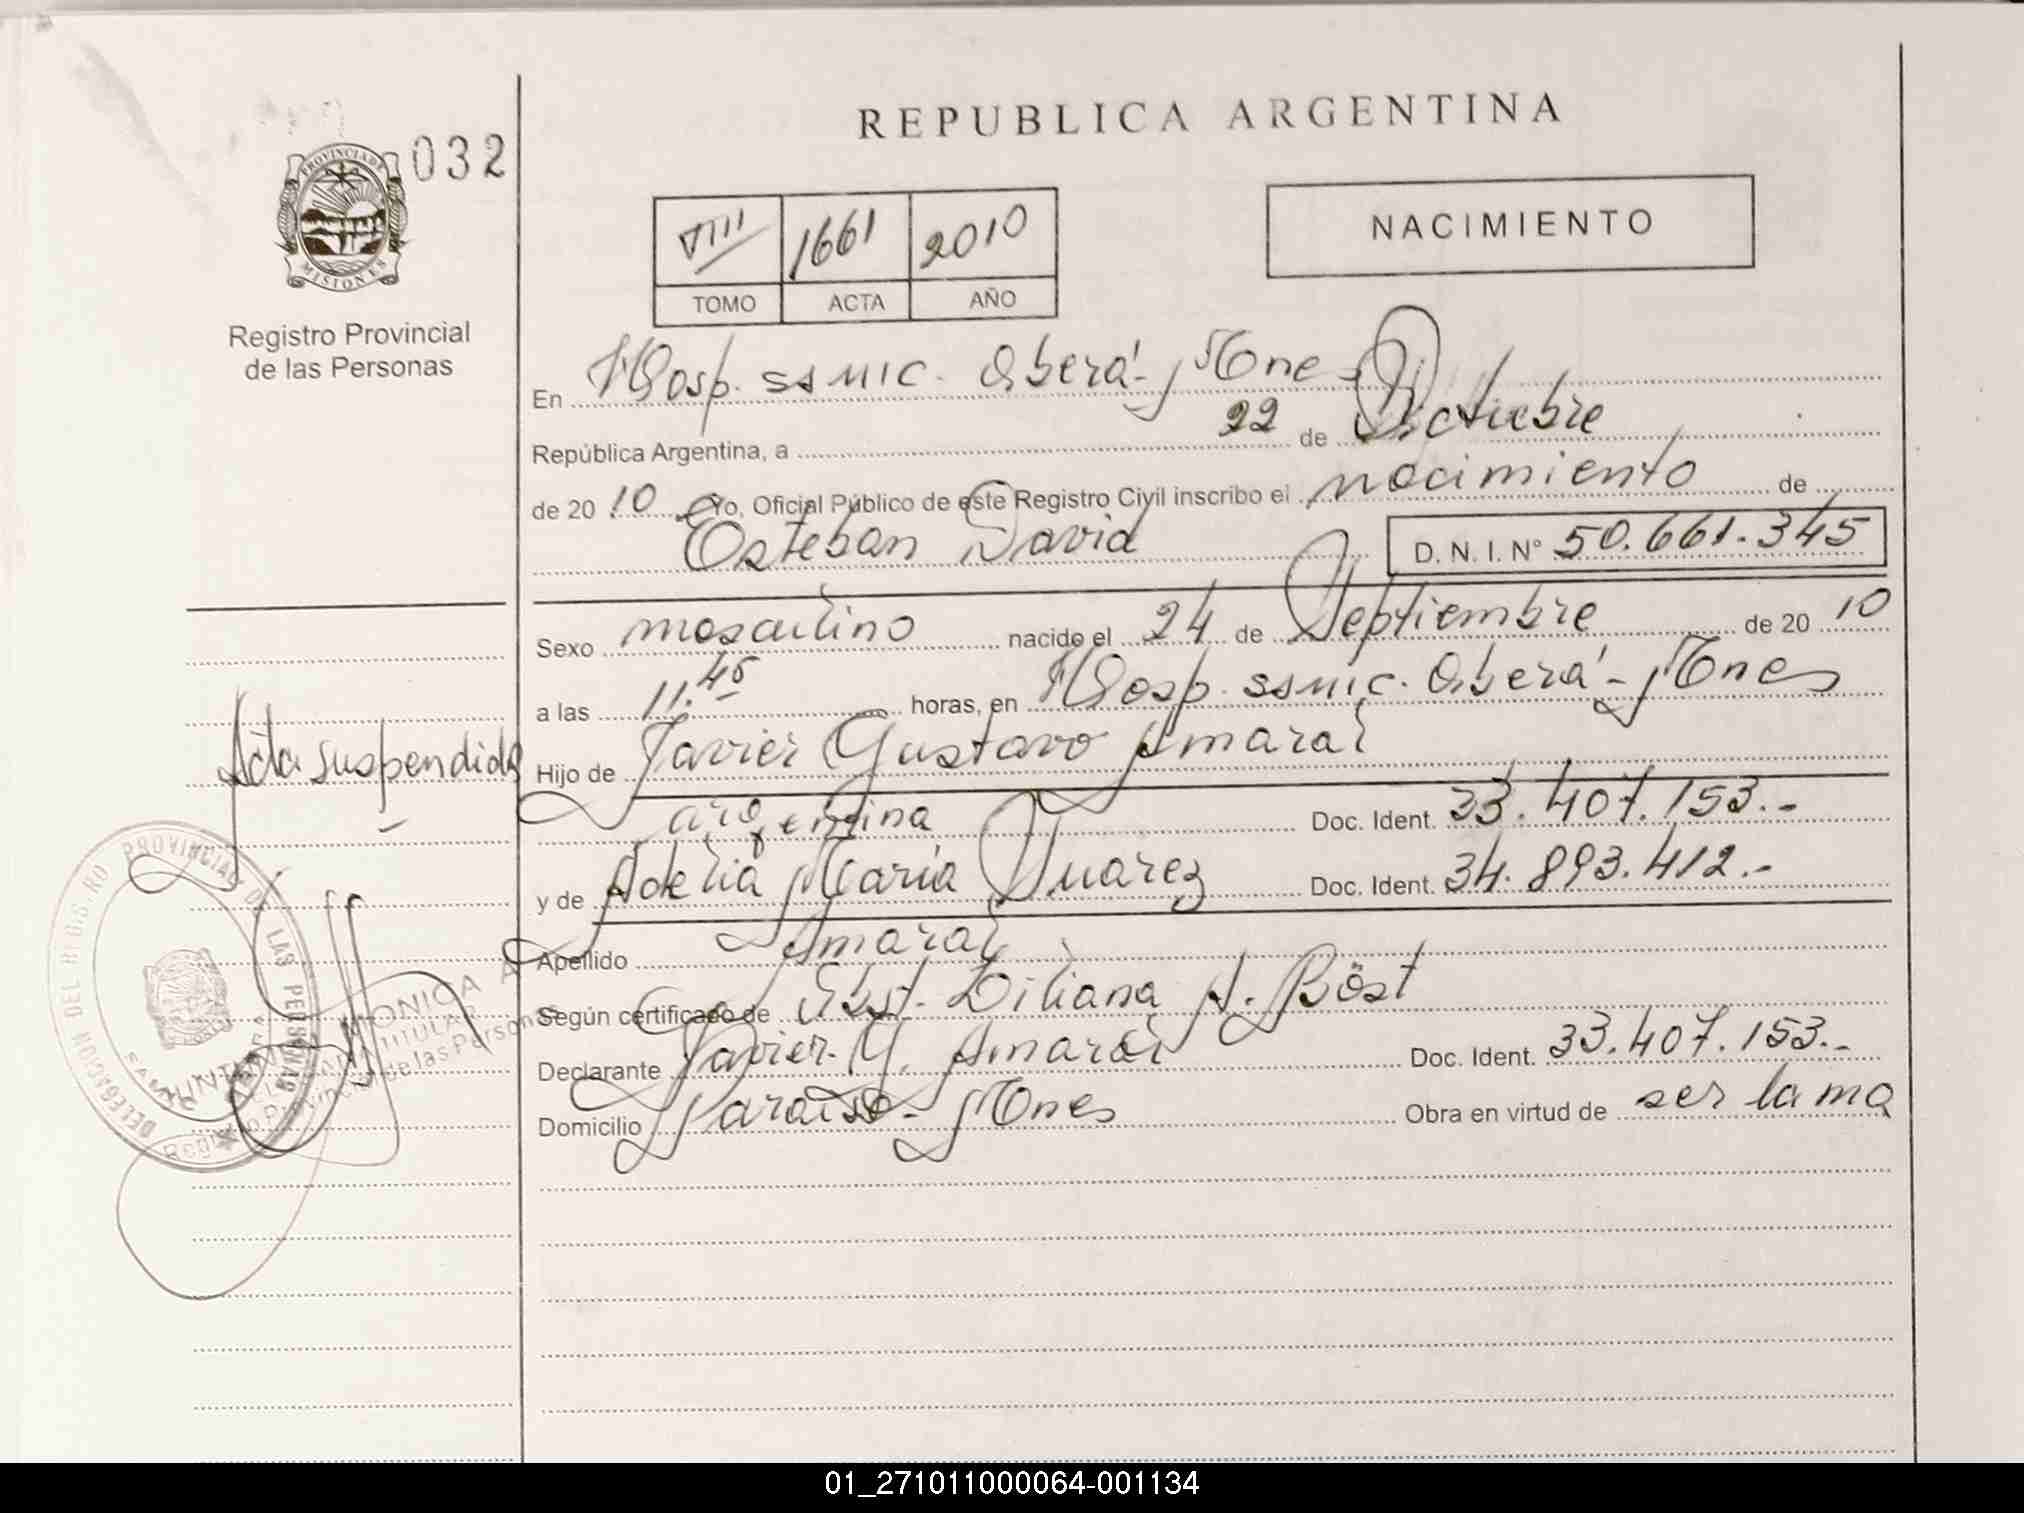 REPUBLICA ARGENTINA
032
PROVINCIA DE
MISIONES
Registro Provincial
de las Personas
VIII 1661 2010
TOMO ACTA AÑO
NACIMIENTO
En Hosp. ssmic. Oberá- Mnes
República Argentina, a 22 de Octubre
de 20 10 Yo, Oficial Público de este Registro Civil inscribo el nacimiento de
Esteban David D. N. I. N° 50.661.345
Sexo masculino nacido el 24 de Septiembre de 20 10
a las 11.45 horas, en Hosp. ssmic. Oberá- Mnes
Hijo de Javier Gustavo Amaral
argentina Doc. Ident. 33.407.153.-
y de Adelia María Suarez Doc. Ident. 34.893.412.-
Apellido Amaral
Según certificado de Obst. Liliana A. Böst
Declarante Javier G. Amaral Doc. Ident. 33.407.153.-
Domicilio Paraiso- Mnes Obra en virtud de ser la ma
Acta suspendida
DELEGACION DEL REGISTRO PROVINCIAL DE LAS PERSONAS
MONICA
TITULAR
de las Personas
01_271011000064-001134